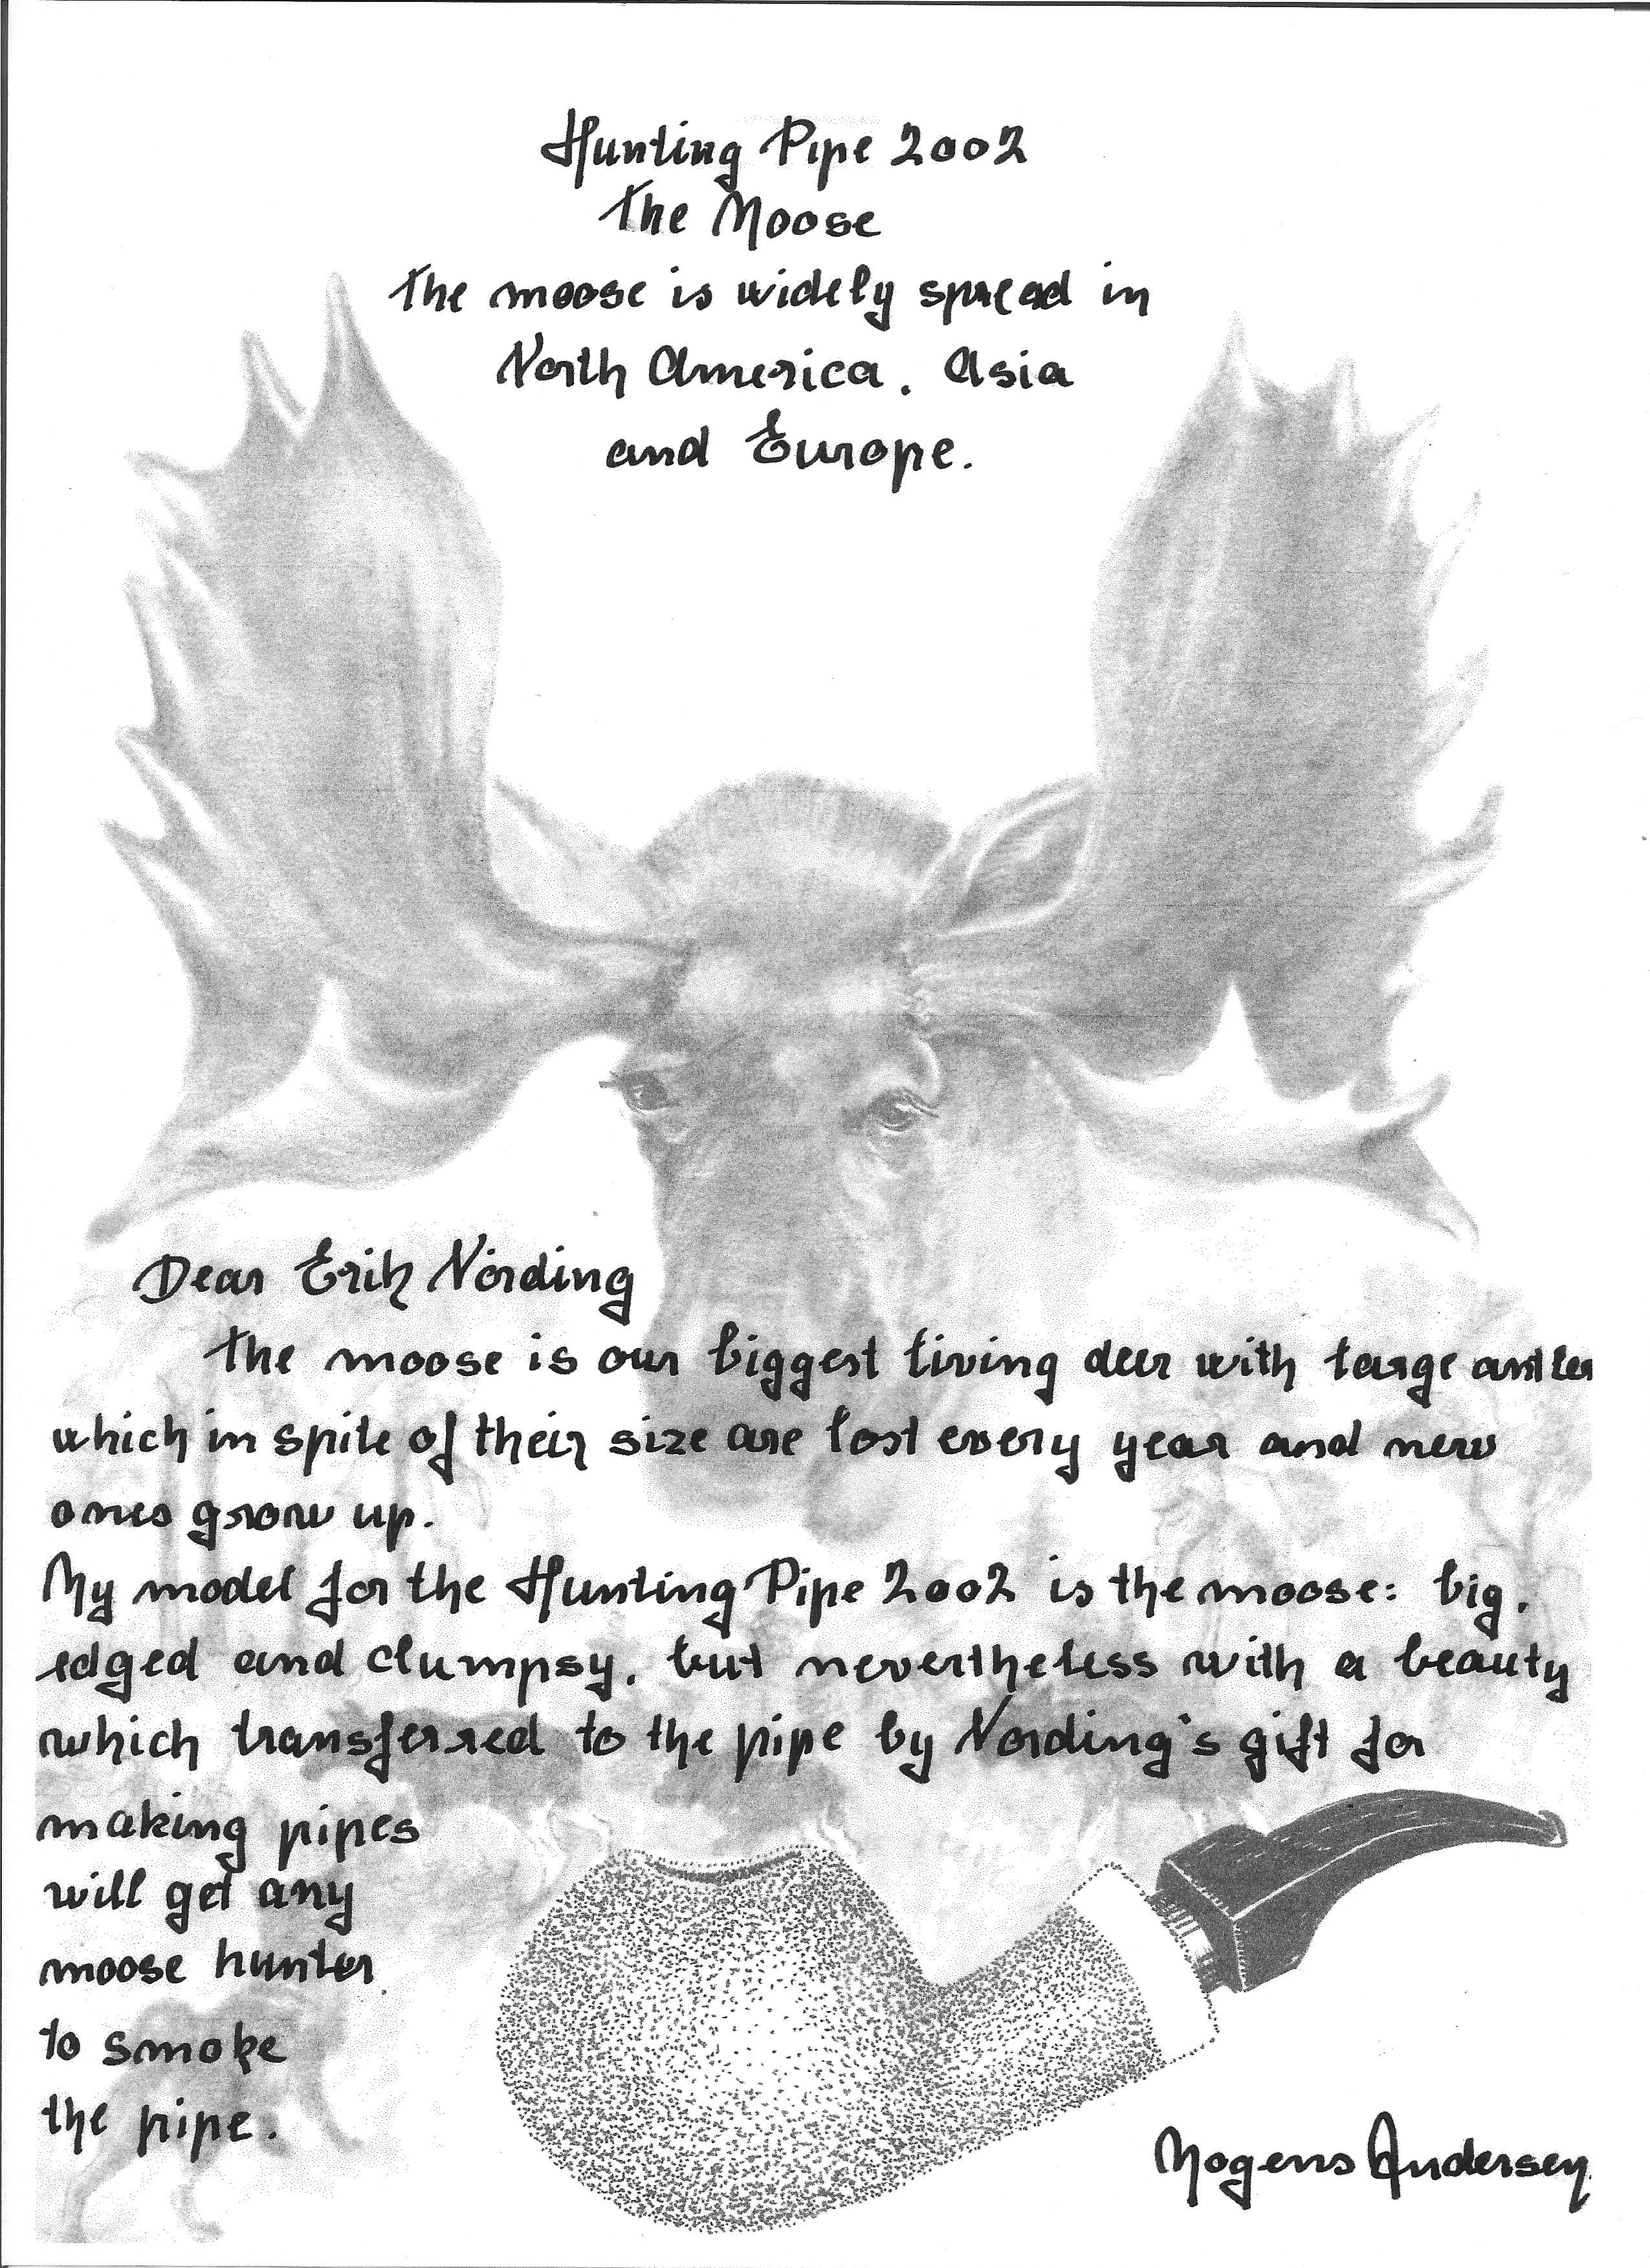 Hunting Pipe 2002
The Moose
The moose is widely spread in
North America. Asia
and Europe.
Dear Erik Nording
The moose is our biggest living deer with large antler
which in spite of their size are lost every year and new
ones grow up.
My model for the Hunting Pipe 2002 is the moose: big,
edged and clumpsy, but nevertheless with a beauty
which transferred to the pipe by Nording's gift for
making pipes
will get any
moose hunter
to smoke
the pipe.
Mogens Andersen